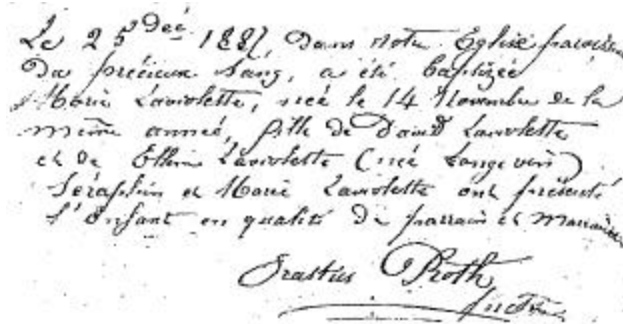 Le 25 Déc 1887, Dans notre Eglise paroisse
Du précieux Sang, a été baptizée
Marie Laviolette, née le 14 Novembre de la
même année, fille de David Laviolette
et de Ellen Laviolette (née Langevin)
Séraphin et Marie Laviolette ont présenté
l'Enfant en qualité de parrain et marraine
Erastus Proth